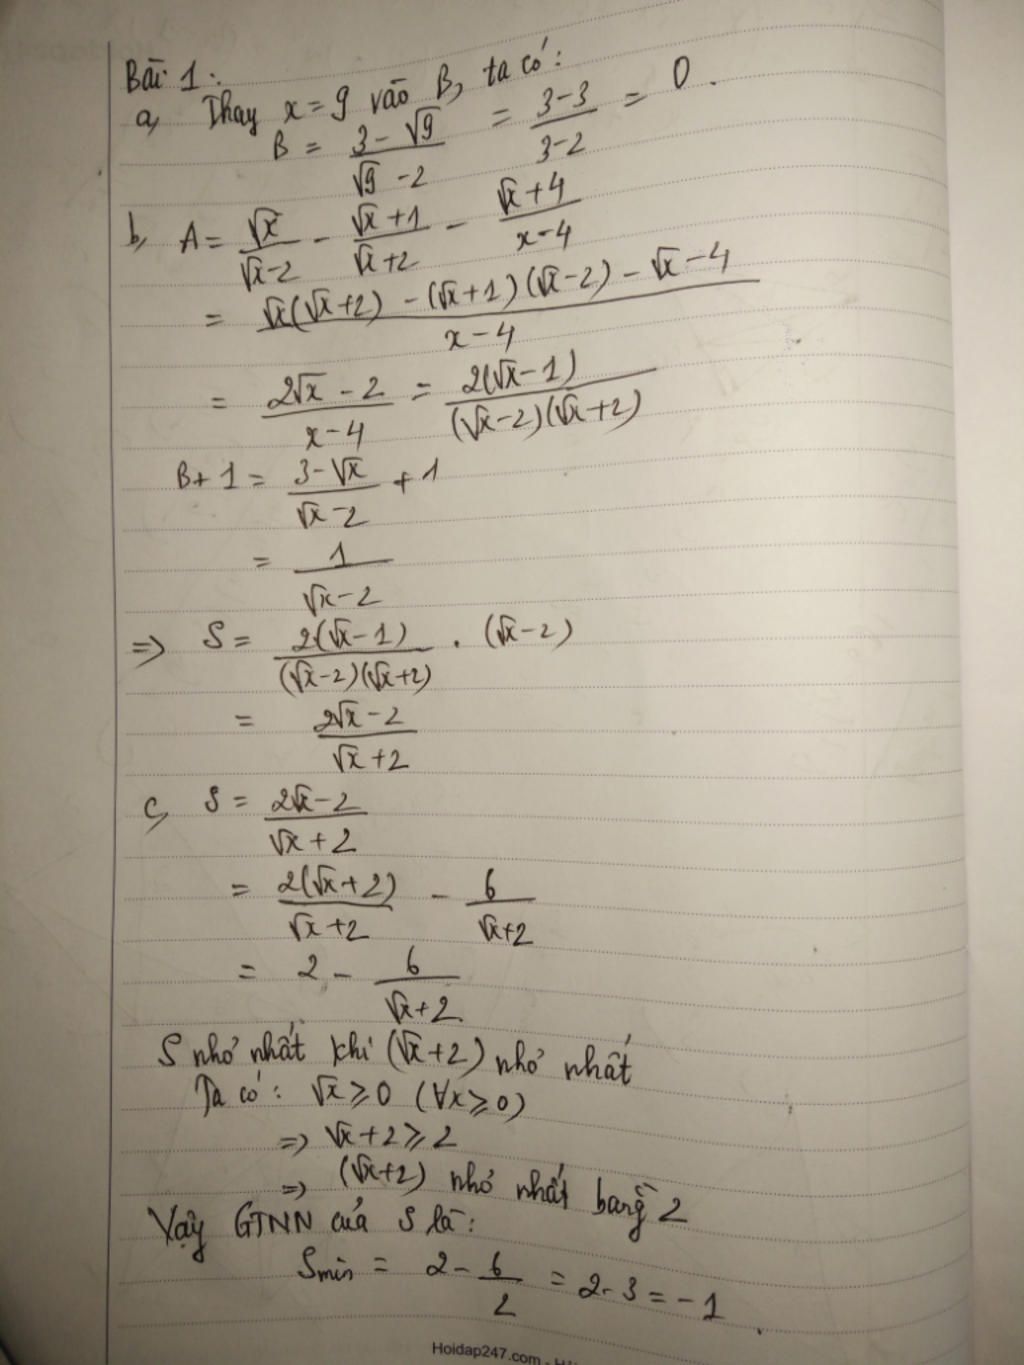 Bài 1:
a, Thay x = 9 vào B, ta có:
B = (3 - √9)/(√9 - 2) = (3-3)/(3-2) = 0.
b, A = √x/(√x-2) - (√x+1)/(√x+2) - (√x+4)/(x-4)
= (√x(√x+2) - (√x+1)(√x-2) - √x - 4)/(x-4)
= (2√x - 2)/(x-4) = 2(√x-1)/((√x-2)(√x+2))
B+1 = (3-√x)/(√x-2) + 1
= 1/(√x-2)
=> S = 2(√x-1)/((√x-2)(√x+2)) . (√x-2)
= (2√x-2)/(√x+2)
c, S = (2√x-2)/(√x+2)
= 2(√x+2)/(√x+2) - 6/(√x+2)
= 2 - 6/(√x+2)
S nhỏ nhất khi (√x+2) nhỏ nhất
Ta có: √x ⩾ 0 (∀x ⩾ 0)
=> √x+2 ⩾ 2
=> (√x+2) nhỏ nhất bằng 2
Vậy GTNN của S là:
Smin = 2 - 6/2 = 2-3 = -1.
Hoidap247.com